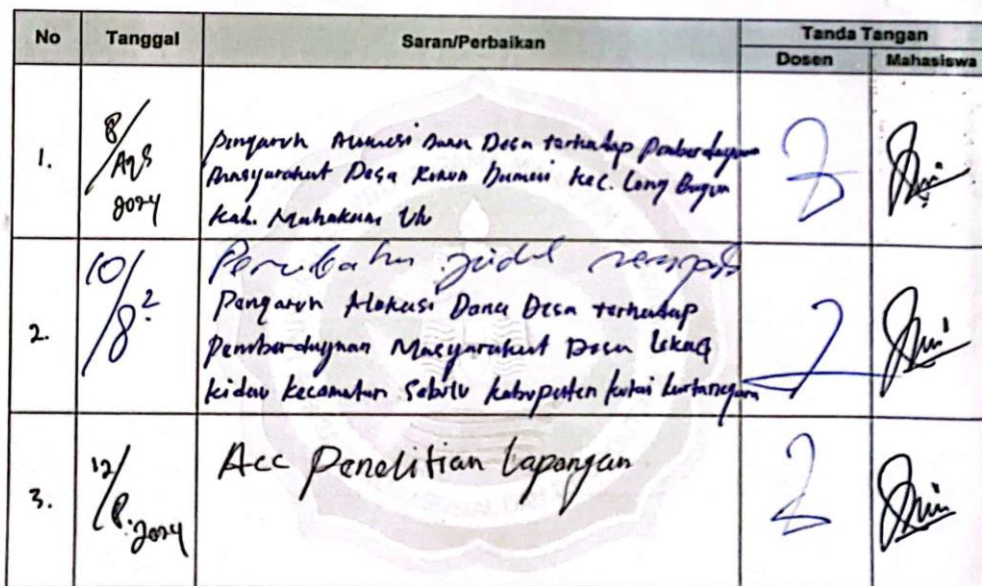 No Tanggal Saran/Perbaikan Tanda Tangan
Dosen Mahasiswa
1. 8/Ags 2024
Pengaruh Alokasi Dana Desa terhadap Pemberdayaan
Masyarakat Desa Kec. Long Bagun
Kab. Mahakam Ulu
2. 10/8
Perubahan judul
Pengaruh Alokasi Dana Desa terhadap
Pemberdayaan Masyarakat Desa Lekaq
Kidau Kecamatan Sebulu Kabupaten Kutai Kartanegara
3. 12/8.2024
Acc Penelitian Lapangan